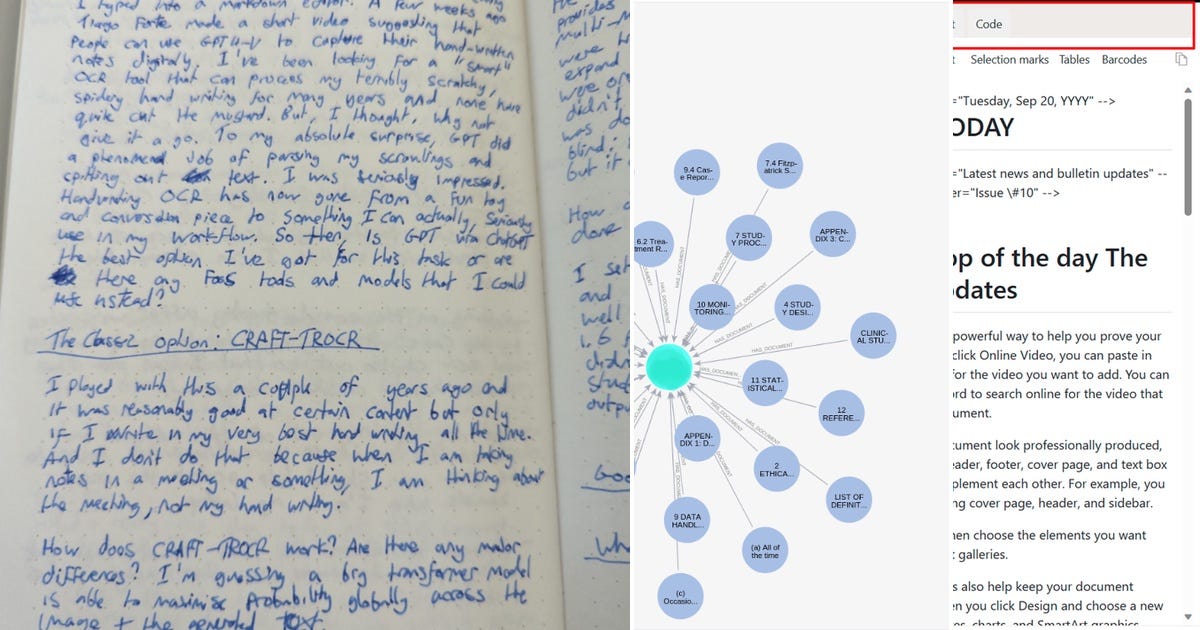 I typed into a markdown editor. A few weeks ago
Tiago Forte made a short video suggesting that
People can use GPT4-V to capture their hand-written
notes digitally. I've been looking for a "smart"
OCR tool that can process my terribly scratchy,
spidery hand writing for many years and none have
quite cut the mustard. But, I thought, why not
give it a go. To my absolute surprise, GPT did
a phenomenal job of parsing my scrawlings and
spitting out text. I was seriously impressed.
Handwriting OCR has now gone from a fun toy
and conversion piece to something I can actually, seriously
use in my workflow. So then, is GPT via ChatGPT
the best option I've got for this task or are
there any FOSS tools and models that I could
use instead?
The Classic option: CRAFT-TROCR
I played with this a couple of years ago and
it was reasonably good at certain content but only
if I write in my very best hand writing all the time.
And I don't do that because when I am taking
notes in a meeting or something, I am thinking about
the meeting, not my hand writing.
How does CRAFT-TROCR work? Are there any major
differences? I'm guessing a big transformer model
is able to maximise probability globally across the
image + the generated text
provides
multi-m
were t
expand
were o
didn't
was do
blind.
but it
How
done
I set
and
well
1.6
Stud
outpu
Goo
Wh
9.4 Cas-
e Repor...
7.4 Fitzp-
atrick S...
6.2 Trea-
tment R...
7 STUD-
Y PROC...
APPEN-
DIX 3: C...
10 MONI-
TORING...
4 STUD-
Y DESI...
CLINIC-
AL STU...
11 STAT-
ISTICAL...
12
REFERE...
APPEN-
DIX 1: D...
2
ETHICA...
LIST OF
DEFINIT...
9 DATA
HANDL...
(a) All of
the time
(c)
Occasio...
HAS_DOCUMENT
HAS_DOCUMENT
HAS_DOCUMENT
HAS_DOCUMENT
HAS_DOCUMENT
t Code
t Selection marks Tables Barcodes
="Tuesday, Sep 20, YYYY" -->
ODAY
="Latest news and bulletin updates" --
er="Issue \#10" -->
op of the day The
dates
powerful way to help you prove your
click Online Video, you can paste in
for the video you want to add. You can
ord to search online for the video that
ument.
cument look professionally produced,
eader, footer, cover page, and text box
plement each other. For example, you
ng cover page, header, and sidebar.
hen choose the elements you want
t galleries.
s also help keep your document
en you click Design and choose a new
es, charts, and SmartArt graphics